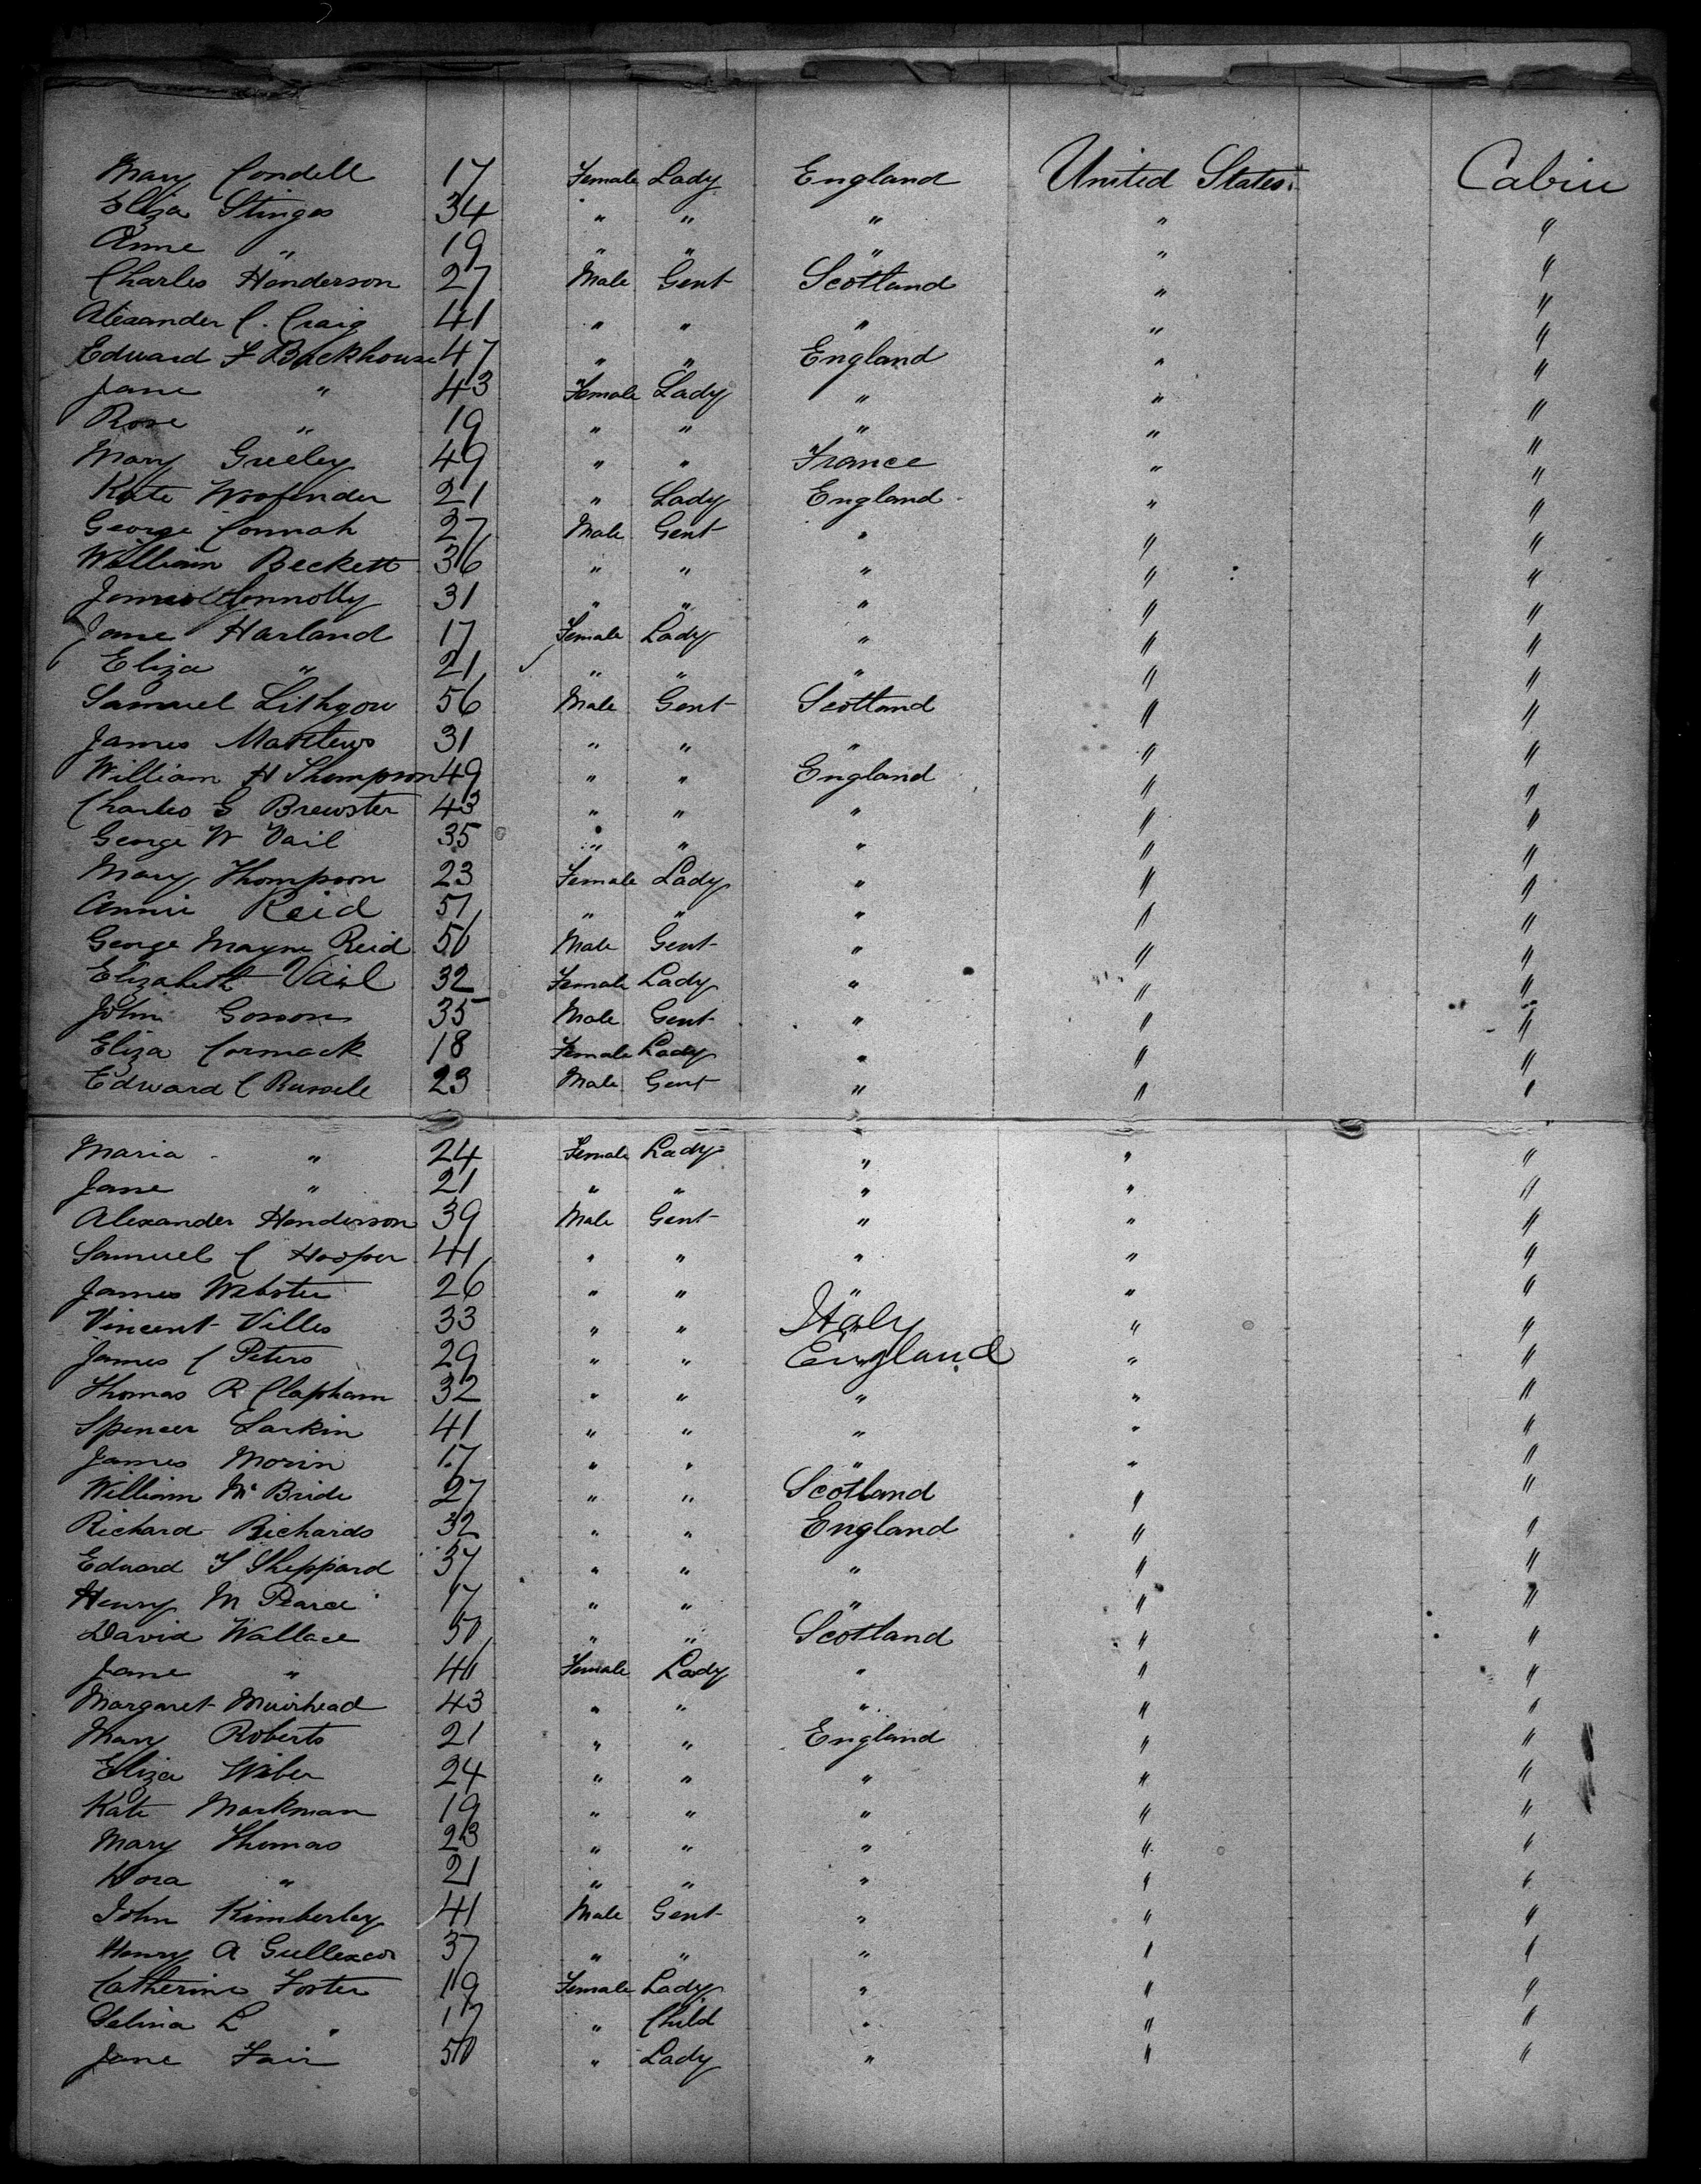 Mary Condell 17 Female Lady England United States. Cabin
Eliza Stinges 34 " " " " "
Anne " 19 " " " " "
Charles Henderson 27 Male Gent Scotland " "
Alexander C. Craig 41 " " " " "
Edward F Backhouse 47 " " England " "
Jane " 43 Female Lady " " "
Rose " 19 " " " " "
Mary Greeley 49 " " France " "
Kate Woofinder 21 " Lady England " "
George Connah 27 Male Gent " " "
William Beckett 36 " " " " "
James Connolly 31 " " " " "
Jane Harland 17 Female Lady " " "
Eliza " 21 " " " " "
Samuel Lithgow 56 Male Gent Scotland " "
James Matthews 31 " " " " "
William H Thompson 49 " " England " "
Charles G Brewster 43 " " " " "
George W Vail 35 " " " " "
Mary Thompson 23 Female Lady " " "
Annie Reid 51 " " " " "
George Mayne Reid Male Gent " " "
Elizabeth Vail 32 Female Lady " " "
John 35 Male Gent " " "
Eliza Cormack 18 Female Lady " " "
Edward C Russele 23 Male Gent " " "
Maria " 24 Female Lady " " "
Jane " 21 " " " " "
Alexander Henderson 39 Male Gent " " "
Samuel C Hooper 41 " " " " "
James Webster 26 " " " " "
Vincent Villes 33 " " Italy " "
James C Peters 29 " " England " "
Thomas R Clapham 32 " " " " "
Spencer Larkin 41 " " " " "
James Morin 17 " " " " "
William Mc Bride 27 " " Scotland " "
Richard Richards 32 " " England " "
Edward T Sheppard 37 " " " " "
Henry M Pearce 17 " " " " "
David Wallace " " Scotland " "
Jane " Female Lady " " "
Margaret Muirhead 43 " " " " "
Mary Roberts 21 " " England " "
Eliza Wiber 24 " " " " "
Kate Markman 19 " " " " "
Mary Thomas 23 " " " " "
Dora " 21 " " " " "
John Kimberley 41 Male Gent " " "
Henry A 37 " " " " "
Catherine Foster 19 Female Lady " " "
Selina L " 17 " Child " " "
Jane Fair " Lady " " "